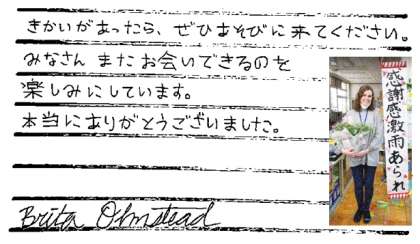 きかいがあったら、ぜひあそびに来てください。
みなさん またお会いできるのを
楽しみにしています。
本当にありがとうございました。
感謝感激雨あられ
Brita Olmstead